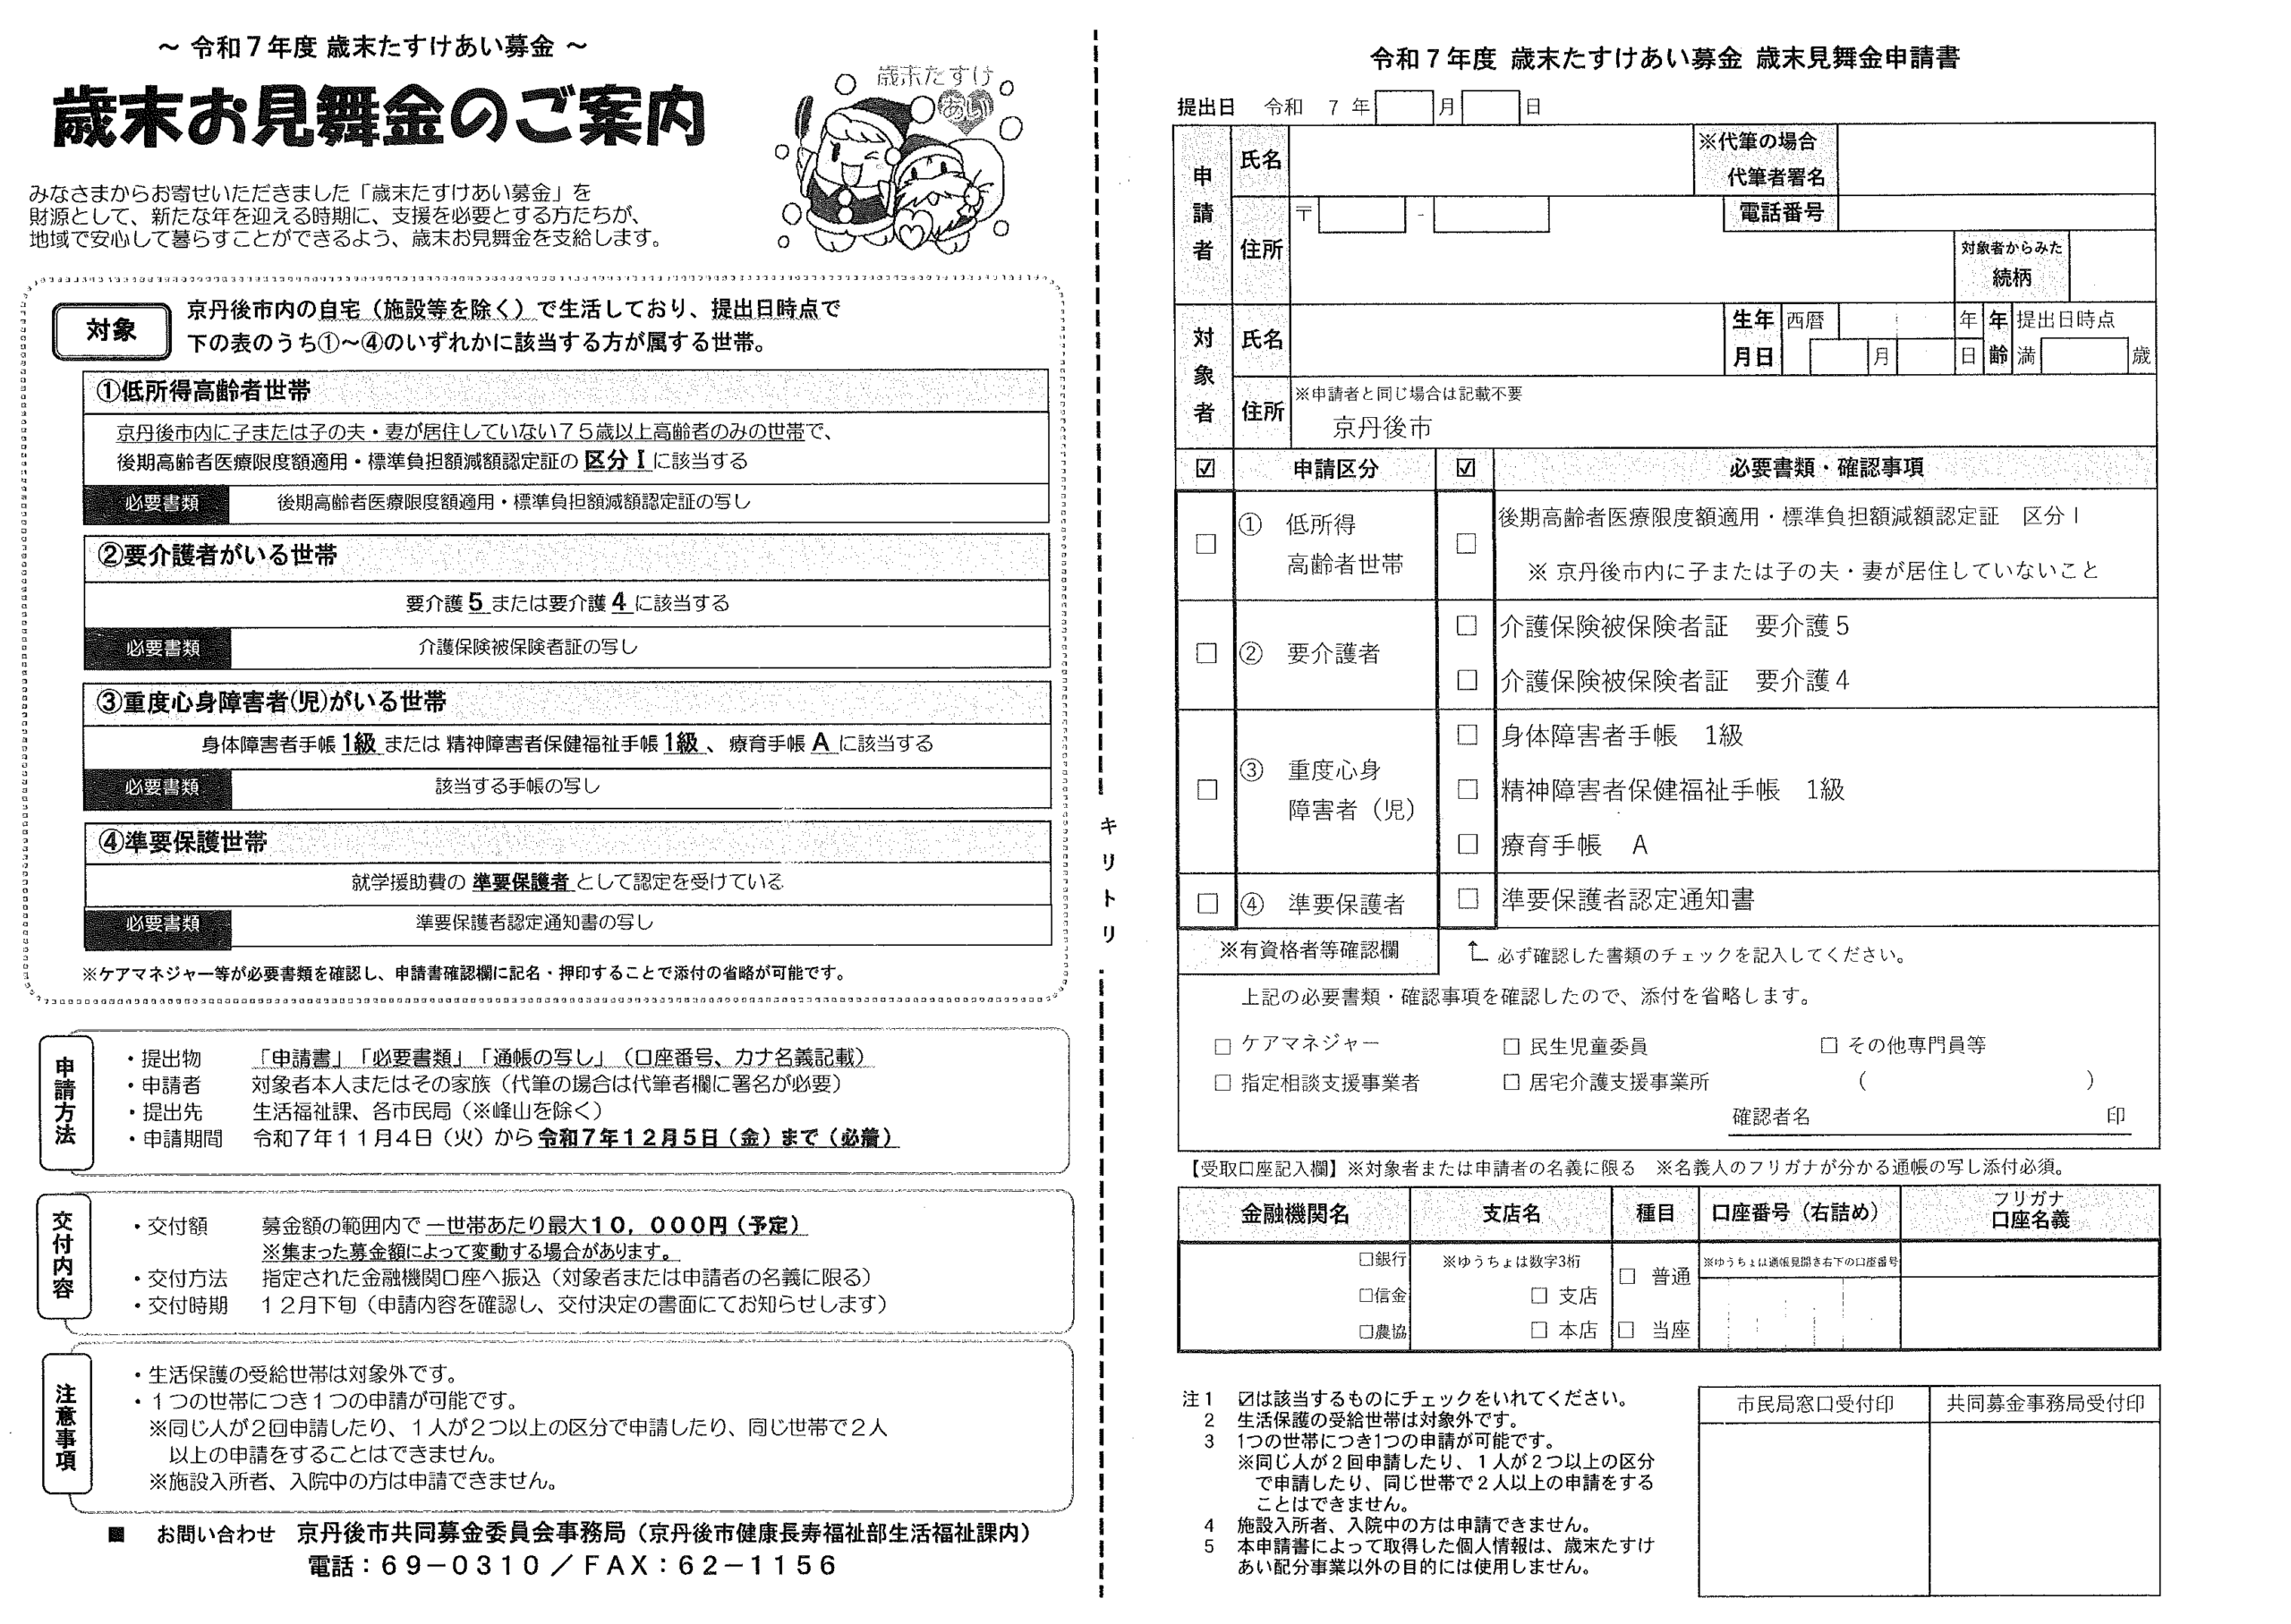 ～ 令和７年度 歳末たすけあい募金 ～
歳末お見舞金のご案内
歳末たすけ
あい
みなさまからお寄せいただきました「歳末たすけあい募金」を
財源として、新たな年を迎える時期に、支援を必要とする方たちが、
地域で安心して暮らすことができるよう、歳末お見舞金を支給します。
対象
京丹後市内の自宅（施設等を除く）で生活しており、提出日時点で
下の表のうち①～④のいずれかに該当する方が属する世帯。
①低所得高齢者世帯
京丹後市内に子または子の夫・妻が居住していない７５歳以上高齢者のみの世帯で、
後期高齢者医療限度額適用・標準負担額減額認定証の 区分Ⅰ に該当する
必要書類 後期高齢者医療限度額適用・標準負担額減額認定証の写し
②要介護者がいる世帯
要介護 5 または要介護 4 に該当する
必要書類 介護保険被保険者証の写し
③重度心身障害者(児)がいる世帯
身体障害者手帳 1級 または 精神障害者保健福祉手帳 1級 、 療育手帳 A に該当する
必要書類 該当する手帳の写し
④準要保護世帯
就学援助費の 準要保護者 として認定を受けている
必要書類 準要保護者認定通知書の写し
※ケアマネジャー等が必要書類を確認し、申請書確認欄に記名・押印することで添付の省略が可能です。
申請方法
・提出物 「申請書」「必要書類」「通帳の写し」（口座番号、カナ名義記載）
・申請者 対象者本人またはその家族（代筆の場合は代筆者欄に署名が必要）
・提出先 生活福祉課、各市民局（※峰山を除く）
・申請期間 令和７年１１月４日（火）から 令和７年１２月５日（金）まで（必着）
交付内容
・交付額 募金額の範囲内で 一世帯あたり最大１０，０００円（予定）
※集まった募金額によって変動する場合があります。
・交付方法 指定された金融機関口座へ振込（対象者または申請者の名義に限る）
・交付時期 １２月下旬（申請内容を確認し、交付決定の書面にてお知らせします）
注意事項
・生活保護の受給世帯は対象外です。
・１つの世帯につき１つの申請が可能です。
※同じ人が２回申請したり、１人が２つ以上の区分で申請したり、同じ世帯で２人
以上の申請をすることはできません。
※施設入所者、入院中の方は申請できません。
■ お問い合わせ 京丹後市共同募金委員会事務局（京丹後市健康長寿福祉部生活福祉課内）
電話：６９－０３１０／ＦＡＸ：６２－１１５６
キリトリ
令和７年度 歳末たすけあい募金 歳末見舞金申請書
提出日 令和 7 年 月 日
申請者
氏名
※代筆の場合
代筆者署名
住所 〒 -
電話番号
対象者からみた
続柄
対象者
氏名
生年月日 西暦 年 月 日
年齢 提出日時点
満 歳
住所
※申請者と同じ場合は記載不要
京丹後市
☑ 申請区分 ☑ 必要書類・確認事項
□ ① 低所得
高齢者世帯
□ 後期高齢者医療限度額適用・標準負担額減額認定証 区分Ⅰ
※ 京丹後市内に子または子の夫・妻が居住していないこと
□ ② 要介護者
□ 介護保険被保険者証 要介護５
□ 介護保険被保険者証 要介護４
□ ③ 重度心身
障害者（児）
□ 身体障害者手帳 1級
□ 精神障害者保健福祉手帳 1級
□ 療育手帳 A
□ ④ 準要保護者 □ 準要保護者認定通知書
※有資格者等確認欄
↑ 必ず確認した書類のチェックを記入してください。
上記の必要書類・確認事項を確認したので、添付を省略します。
□ ケアマネジャー □ 民生児童委員 □ その他専門員等
□ 指定相談支援事業者 □ 居宅介護支援事業所 （ ）
確認者名 印
【受取口座記入欄】※対象者または申請者の名義に限る ※名義人のフリガナが分かる通帳の写し添付必須。
金融機関名 支店名 種目 口座番号（右詰め） フリガナ
口座名義
□銀行
□信金
□農協
※ゆうちょは数字3桁
□ 支店
□ 本店
□ 普通
□ 当座
※ゆうちょは通帳見開き右下の口座番号
注１ ☑は該当するものにチェックをいれてください。
２ 生活保護の受給世帯は対象外です。
３ 1つの世帯につき1つの申請が可能です。
※同じ人が２回申請したり、１人が２つ以上の区分
で申請したり、同じ世帯で２人以上の申請をする
ことはできません。
４ 施設入所者、入院中の方は申請できません。
５ 本申請書によって取得した個人情報は、歳末たすけ
あい配分事業以外の目的には使用しません。
市民局窓口受付印 共同募金事務局受付印